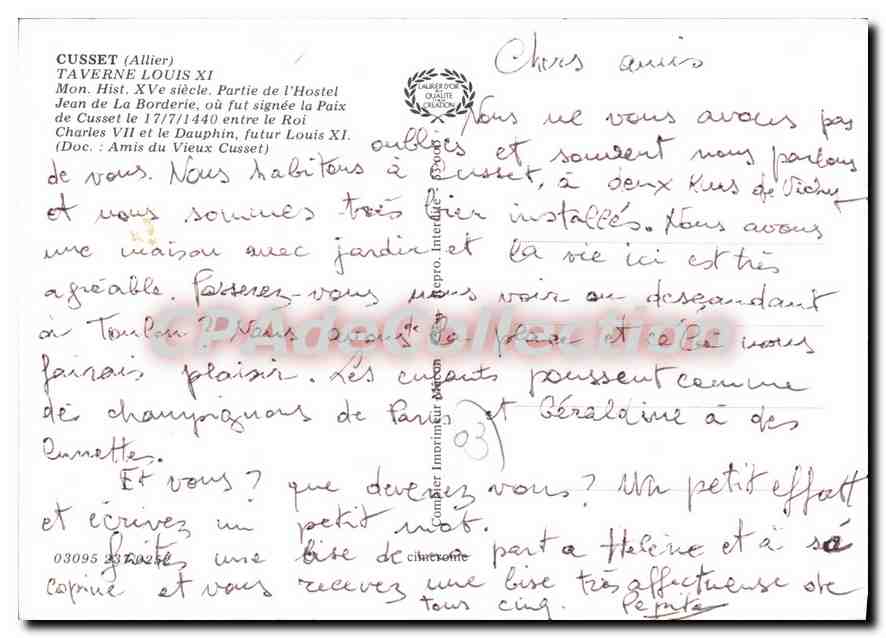 CUSSET (Allier)
TAVERNE LOUIS XI
Mon. Hist. XVe siècle. Partie de l'Hostel
Jean de La Borderie, où fut signée la Paix
de Cusset le 17/7/1440 entre le Roi
Charles VII et le Dauphin, futur Louis XI.
(Doc. : Amis du Vieux Cusset)
LAURIER D'OR
DE LA
QUALITÉ
CRÉATION
Chers amis
Nous ne vous avons pas
oubliés et souvent nous parlons
de vous. Nous habitons à Cusset, à deux Kms de Vichy
et nous sommes très bien installés. Nous avons
une maison avec jardin et la vie ici est très
agréable. Passerez-vous nous voir en descendant
à Toulon? Nous avons de la place et cela nous
fairais plaisir. Les enfants poussent comme
des champignons de Paris et Géraldine à des
lunettes.
Et vous? que devenez vous? Un petit effort
et écrivez un petit mot.
faites une bise de ma part a Hélène et à sa
copine et vous recevez une bise très affectueuse de
tous cinq. Pepita
03
03095
cim
Combier Imprimeur Mâcon
Repro. Interdite
CPAdeCollection